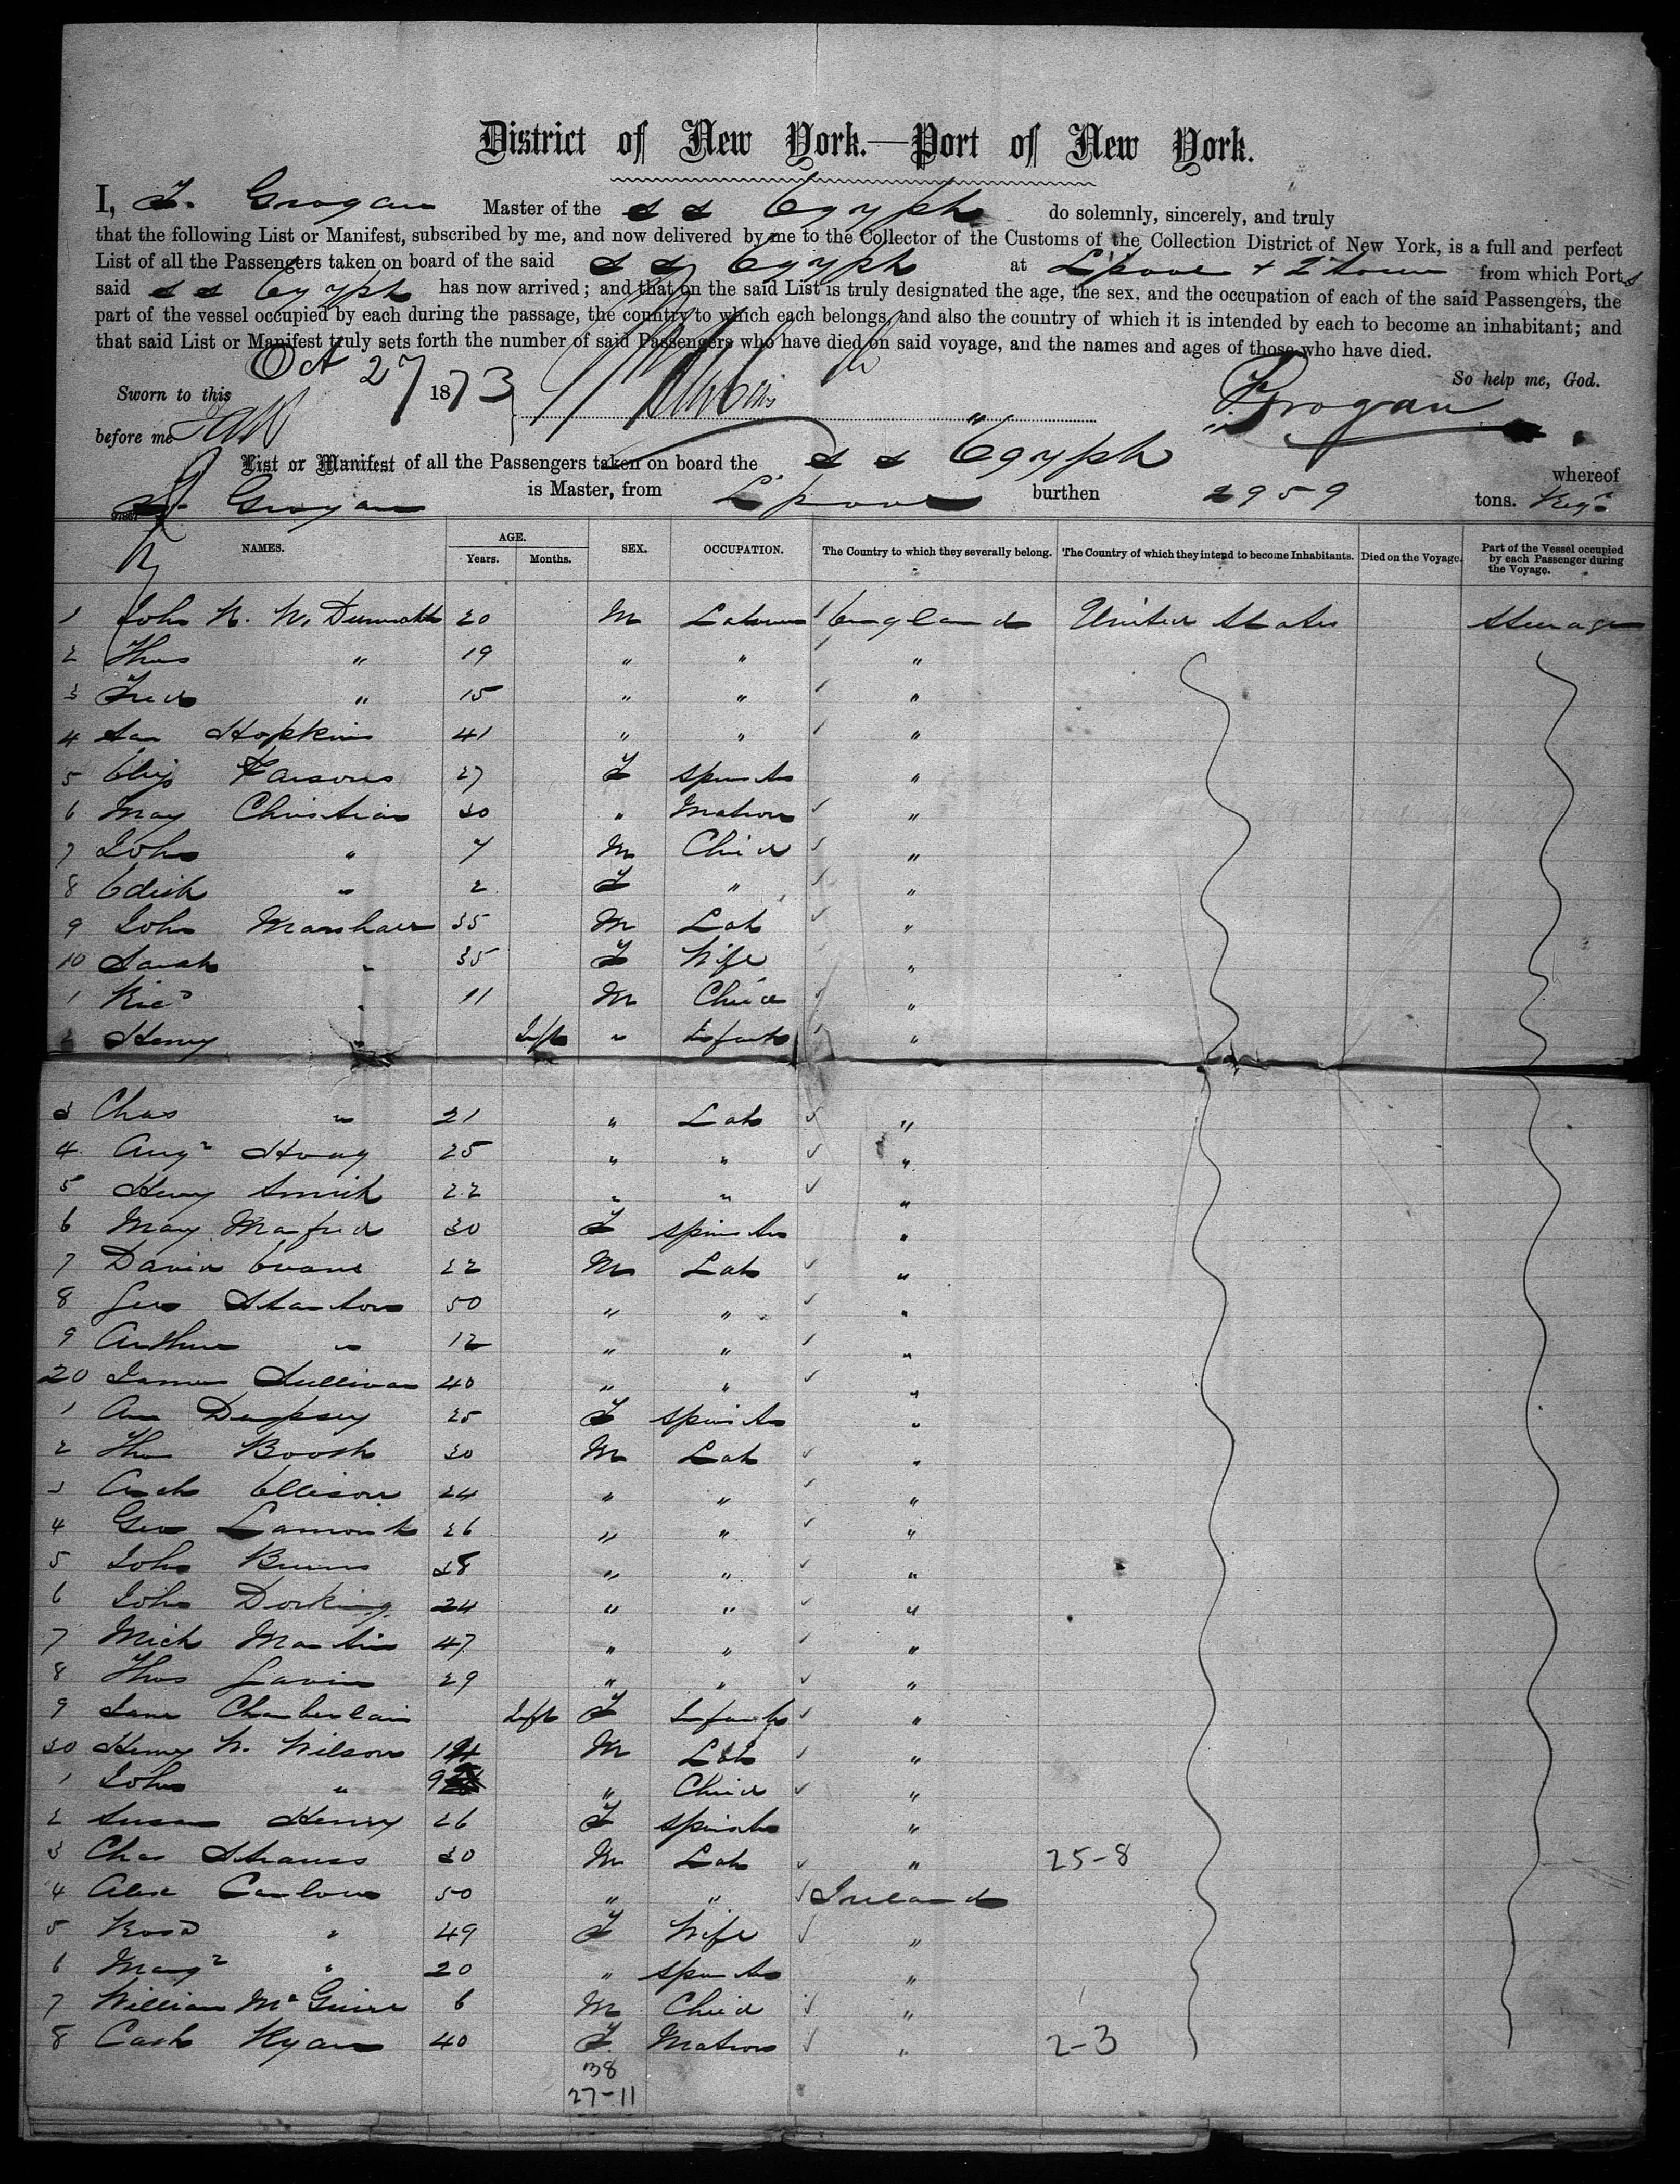 District of New York.—Port of New York.
I, F. Grogan Master of the S S Egypt do solemnly, sincerely, and truly
that the following List or Manifest, subscribed by me, and now delivered by me to the Collector of the Customs of the Collection District of New York, is a full and perfect
List of all the Passengers taken on board of the said S S Egypt at L'pool + Q'town from which Ports
said S S Egypt has now arrived; and that on the said List is truly designated the age, the sex, and the occupation of each of the said Passengers, the
part of the vessel occupied by each during the passage, the country to which each belongs, and also the country of which it is intended by each to become an inhabitant; and
that said List or Manifest truly sets forth the number of said Passengers who have died on said voyage, and the names and ages of those who have died.
So help me, God.
Sworn to this Oct 27 1873
F. Grogan
before me
List or Manifest of all the Passengers taken on board the S S Egypt whereof
Grogan is Master, from L'pool burthen 2959 tons. Reg.
NAMES. AGE. Years. Months. SEX. OCCUPATION. The Country to which they severally belong. The Country of which they intend to become Inhabitants. Died on the Voyage. Part of the Vessel occupied by each Passenger during the Voyage.
1 John 20 M Labourer England United States Steerage
2 Thos " 19 " " "
3 Fred " 15 " " "
4 Hopkins 41 " " "
5 Eliz Parsons 27 F Spinster "
6 Mary Christian 30 " Matron "
7 John " 7 M Child "
8 Edith " 2 F " "
9 John Marshall 35 M Lab "
10 Sarah " 35 F Wife "
1 Ricd " 11 M Child "
2 Henry " Inft " Infant "
3 Chas " 21 " Lab "
4 Augt Hoag 25 " " "
5 Henry Smith 22 " " "
6 Mary 30 F Spinster "
7 David Evans 22 M Lab "
8 Geo Stanton 50 " " "
9 Arthur " 12 " " "
20 James Sullivan 40 " " "
1 Ann Dempsey 25 F Spinster "
2 Thos Booth 30 M Lab "
3 Arch Ellison 24 " " "
4 Geo Lamont 26 " " "
5 John Burns 28 " " "
6 John Dorking 24 " " "
7 Mich Martin 47 " " "
8 Thos Gavin 29 " " "
9 Jane Chamberlain Inft F Infant "
30 Henry W. Wilson M Lab "
1 John " 9 " Child "
2 Susan Henry 26 F Spinster "
3 Chas Strauss 30 M Lab " 25-8
4 Alex Carlow 50 " " Ireland
5 Rosa " 49 F Wife "
6 Margt " 20 " Spinster "
7 William McGuire 6 M Child "
8 Cath Ryan 40 F Matron " 2-3
38
27-11